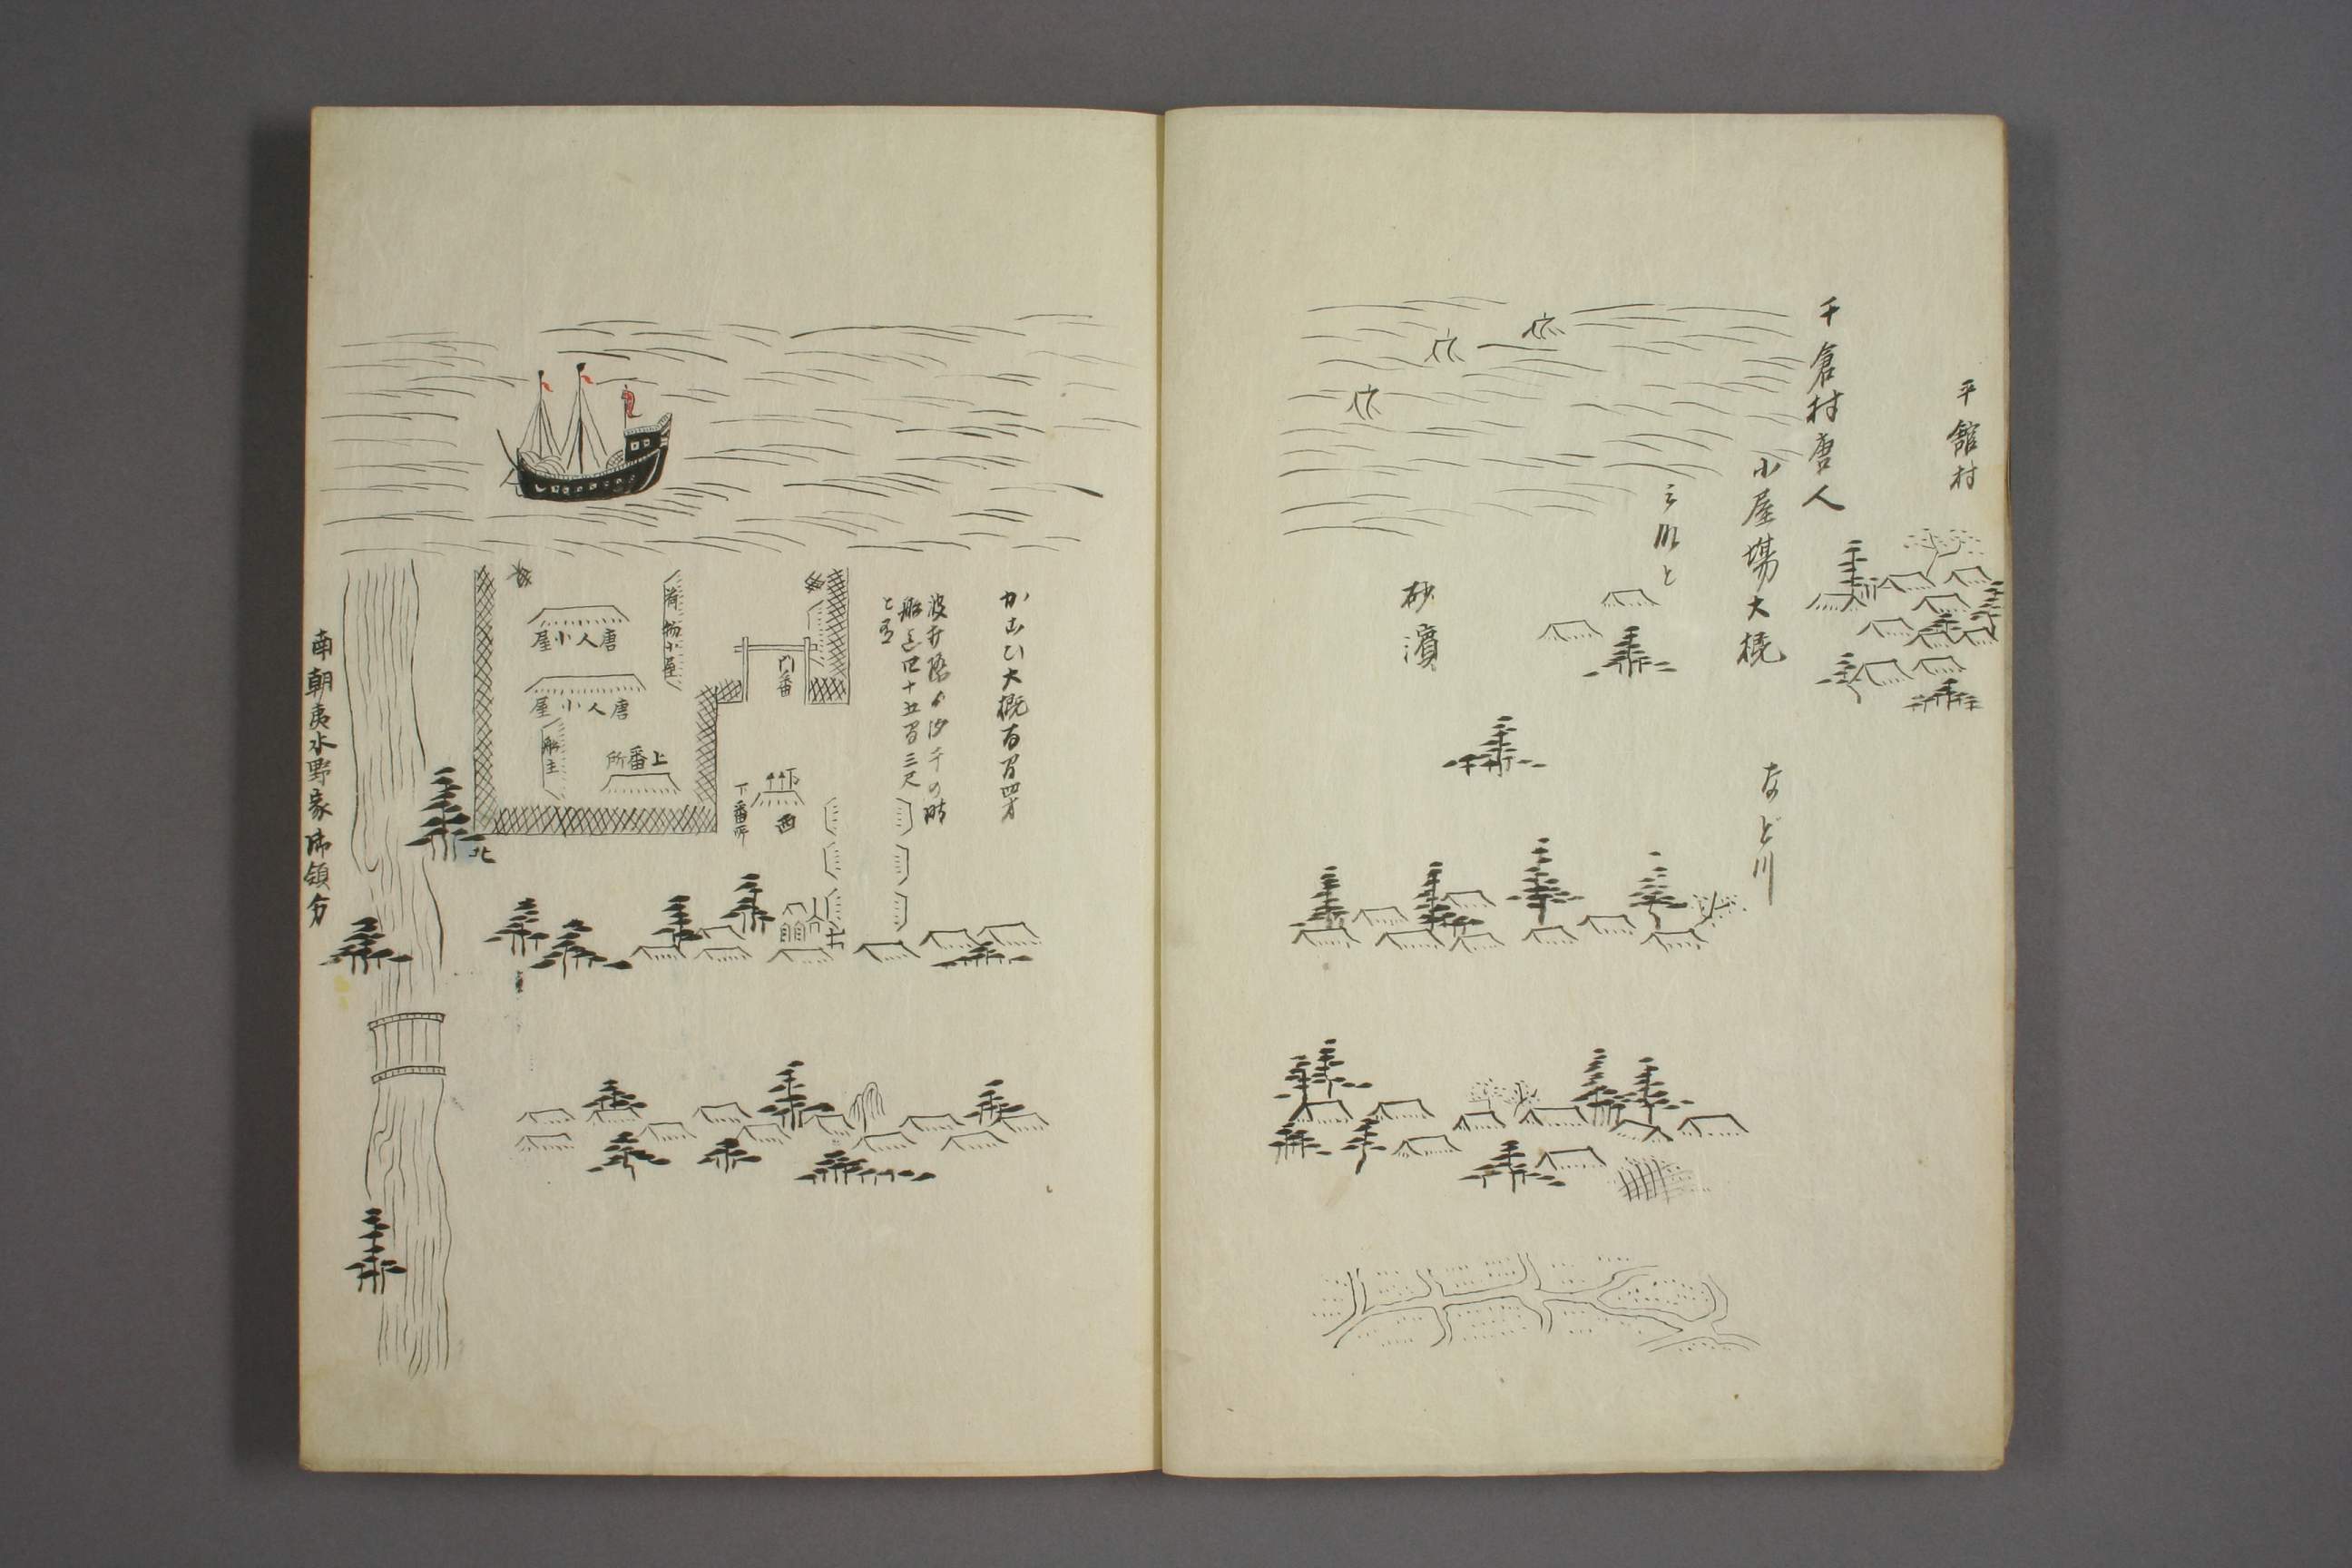 平舘村
千倉村唐人
小屋場大概
砂濱
など川
かこひ大概百間四方
波打際ゟ汐干の時
船迄四十五間三尺
と言
門番
荷物小屋
唐人小屋
唐人小屋
船主
上番所
下番所
西
北
南朝夷水野家御領分